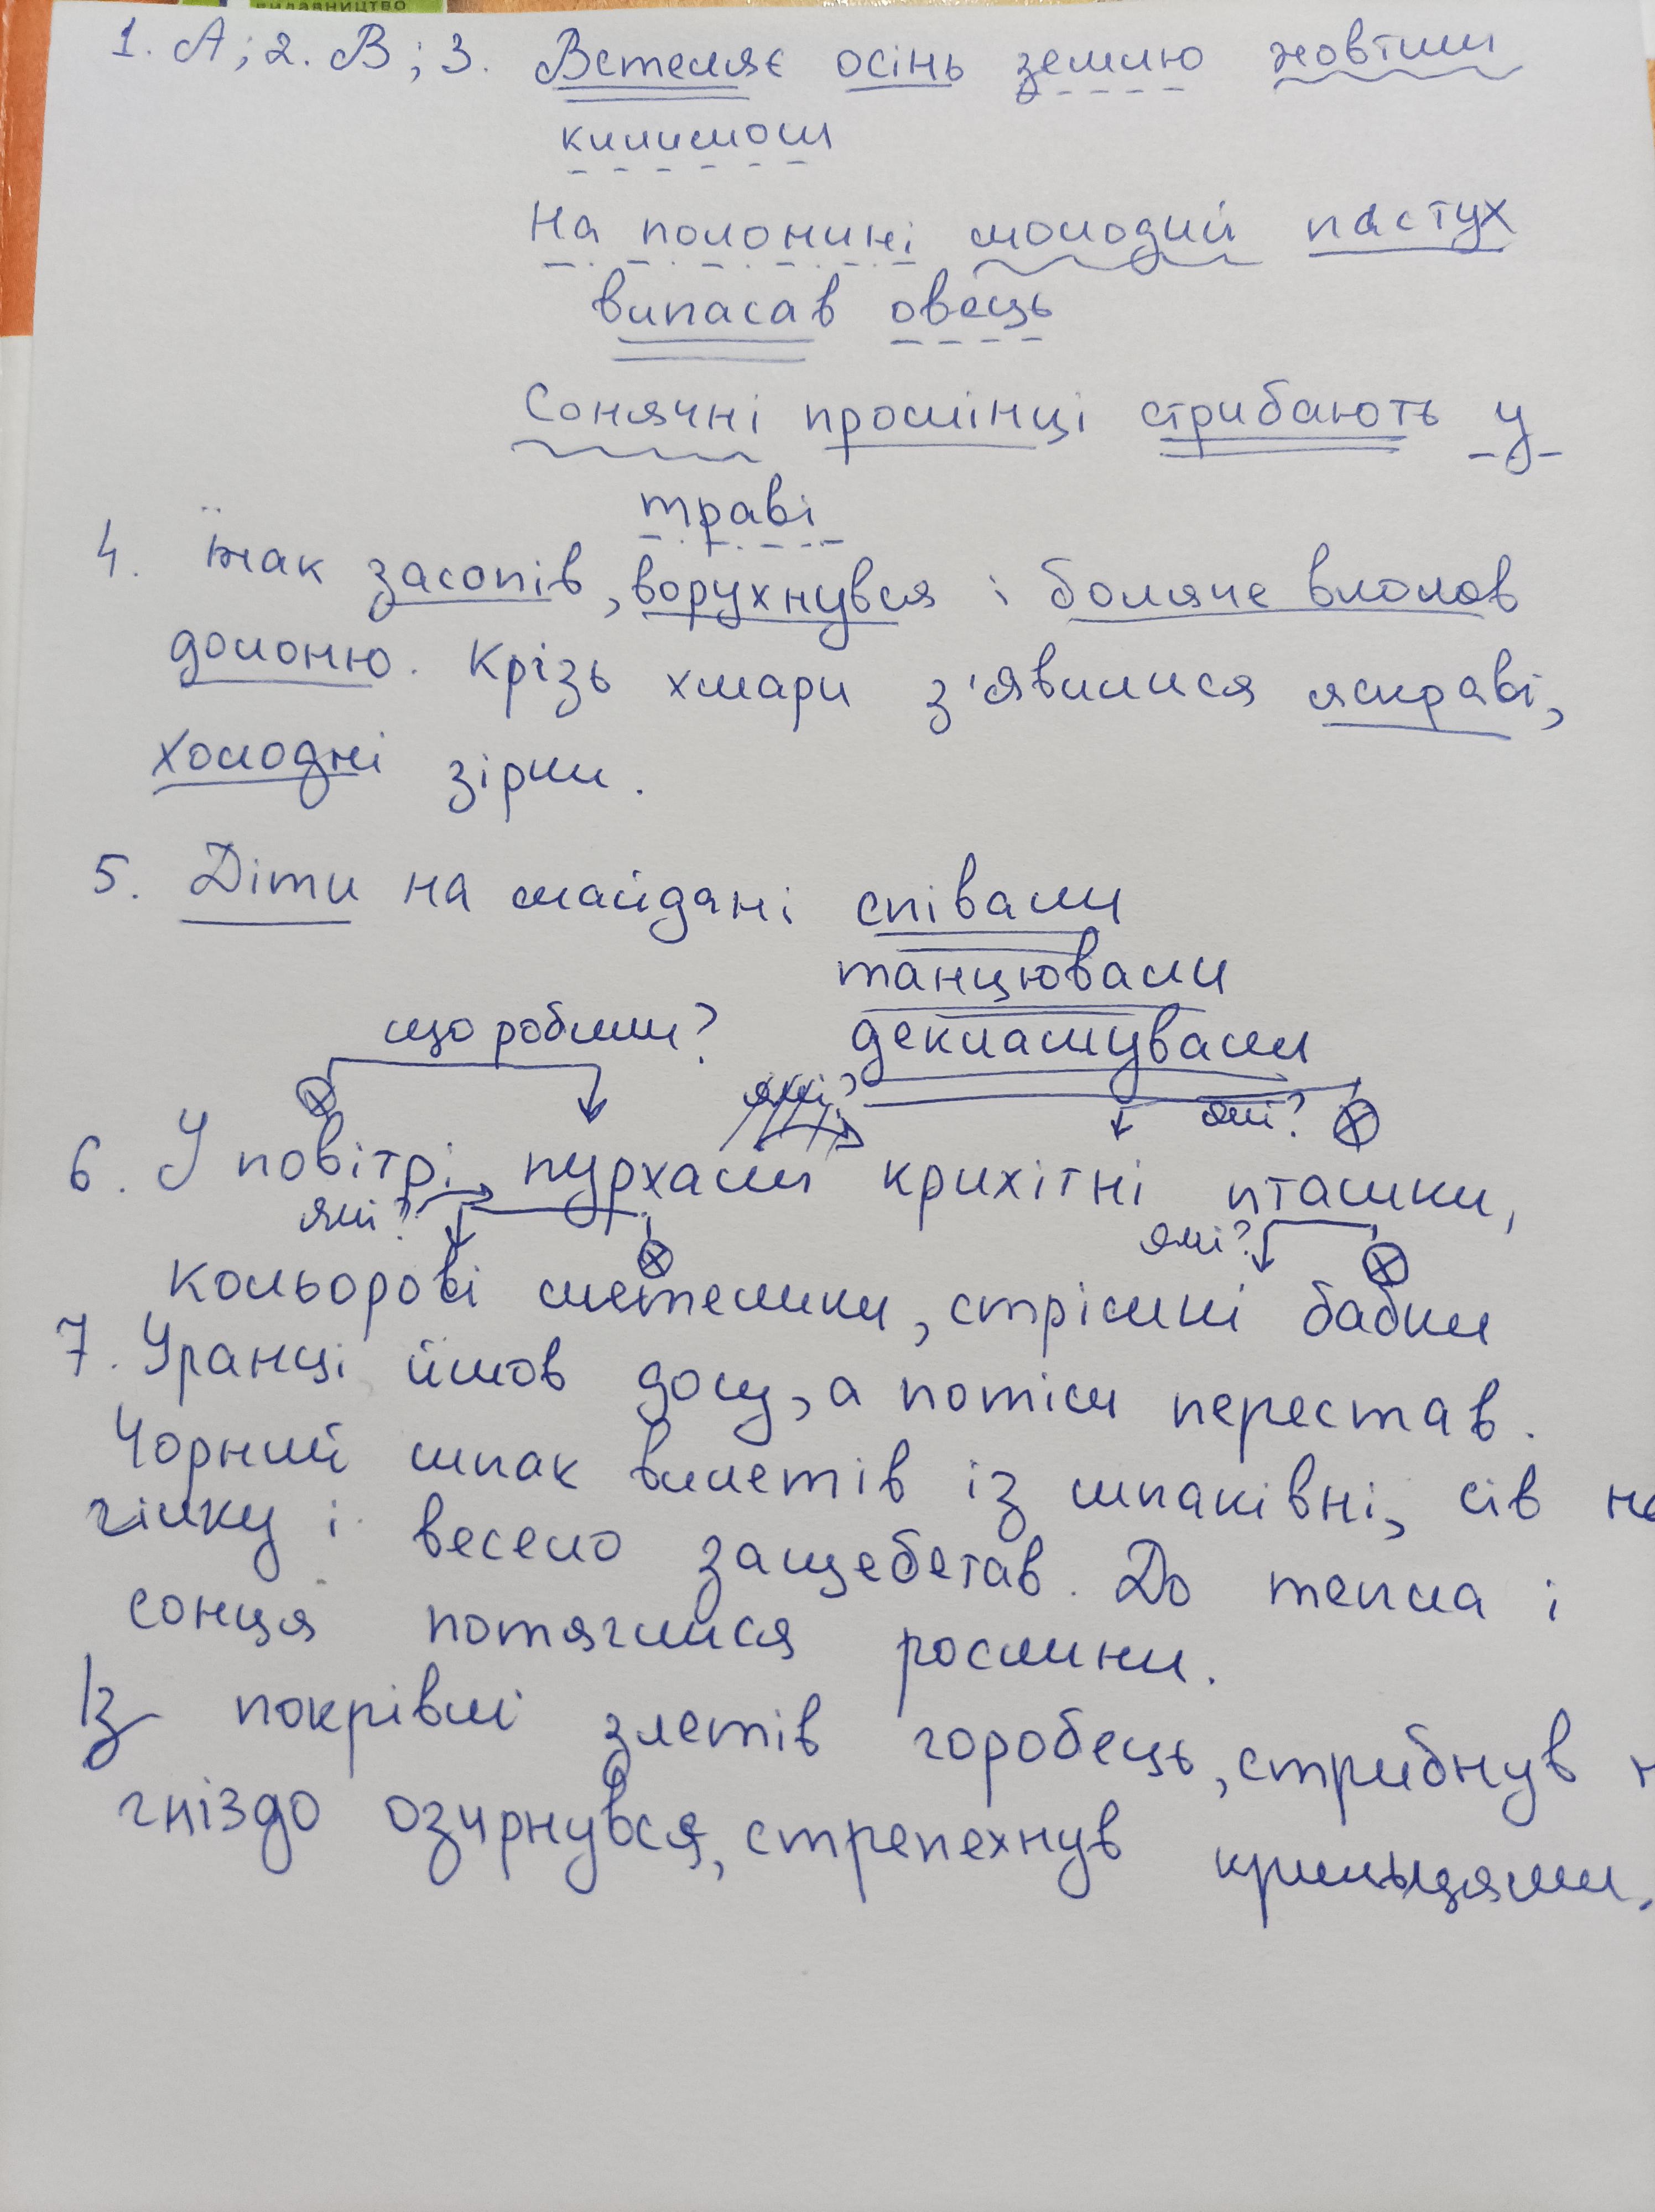 видавництво
1. А; 2. В; 3. Встеляє осінь землю жовтим
килимом
На полонині молодий пастух
випасав овець
Сонячні промінці стрибають у
траві
4. Їжак засопів, ворухнувся і боляче вколов
долоню. Крізь хмари з'явилися яскраві,
холодні зірки.
5. Діти на майдані співали
танцювали
що робили? декламували
які? які?
6. У повітрі пурхали крихітні пташки,
які? які?
кольорові метелики, стрімкі бабки
7. Уранці йшов дощ, а потім перестав.
Чорний шпак вилетів із шпаківні, сів на
гілку і весело защебетав. До тепла і
сонця потяглися рослини.
Із покрівлі злетів горобець, стрибнув н
гніздо озирнувся, стрепехнув крильцями.